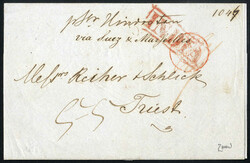 p Str Hindostan 1049
via Suez & Marseilles
INDIA
Messrs Reiher & Schlick
Triest